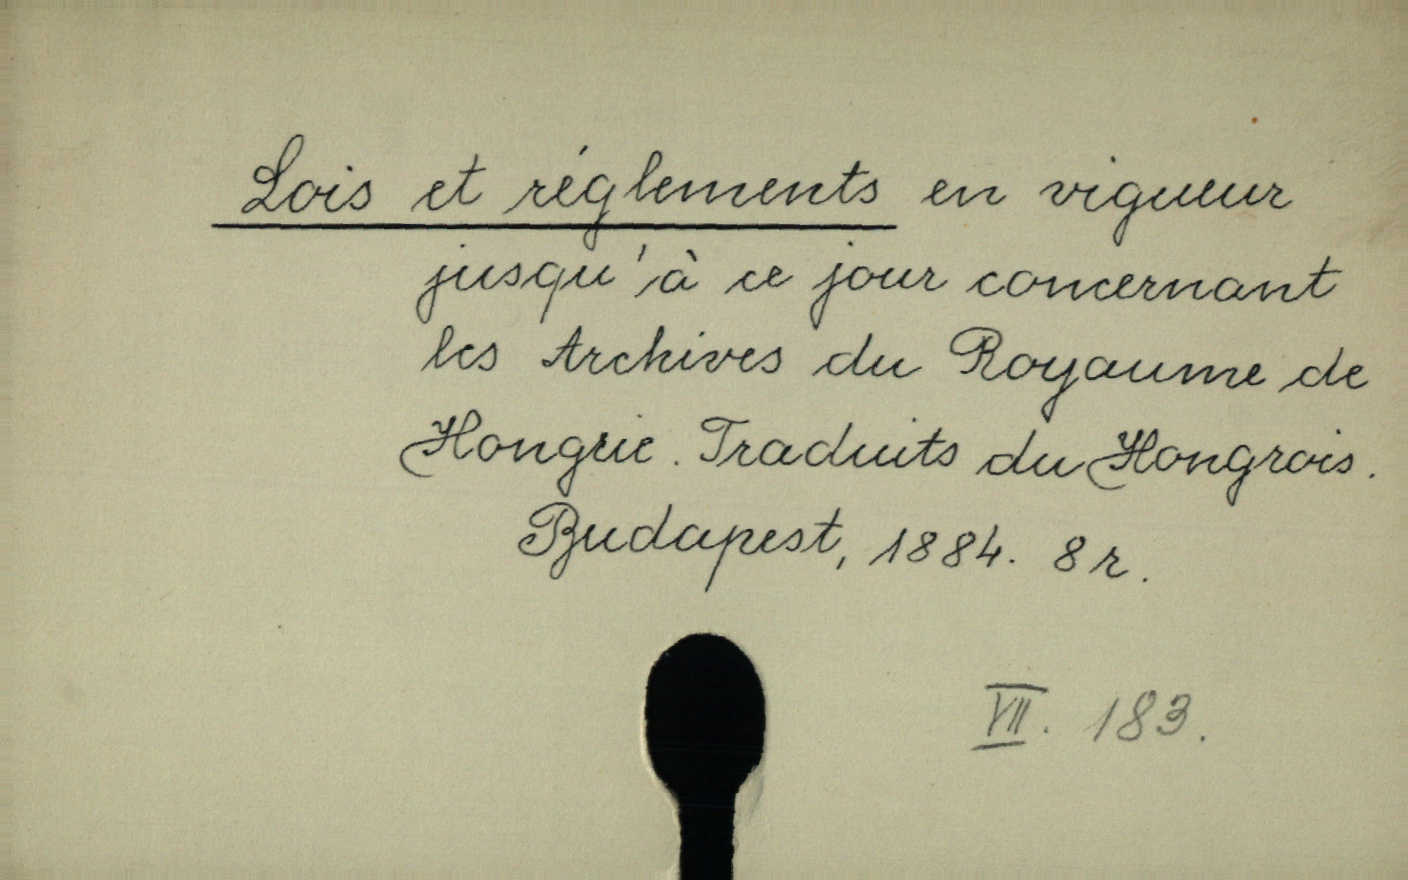 Lois et réglements en vigueur
jusqu'à ce jour concernant
les Archives du Royaume de
Hongrie. Traduits du Hongrois.
Budapest, 1884. 8r.
VII. 183.